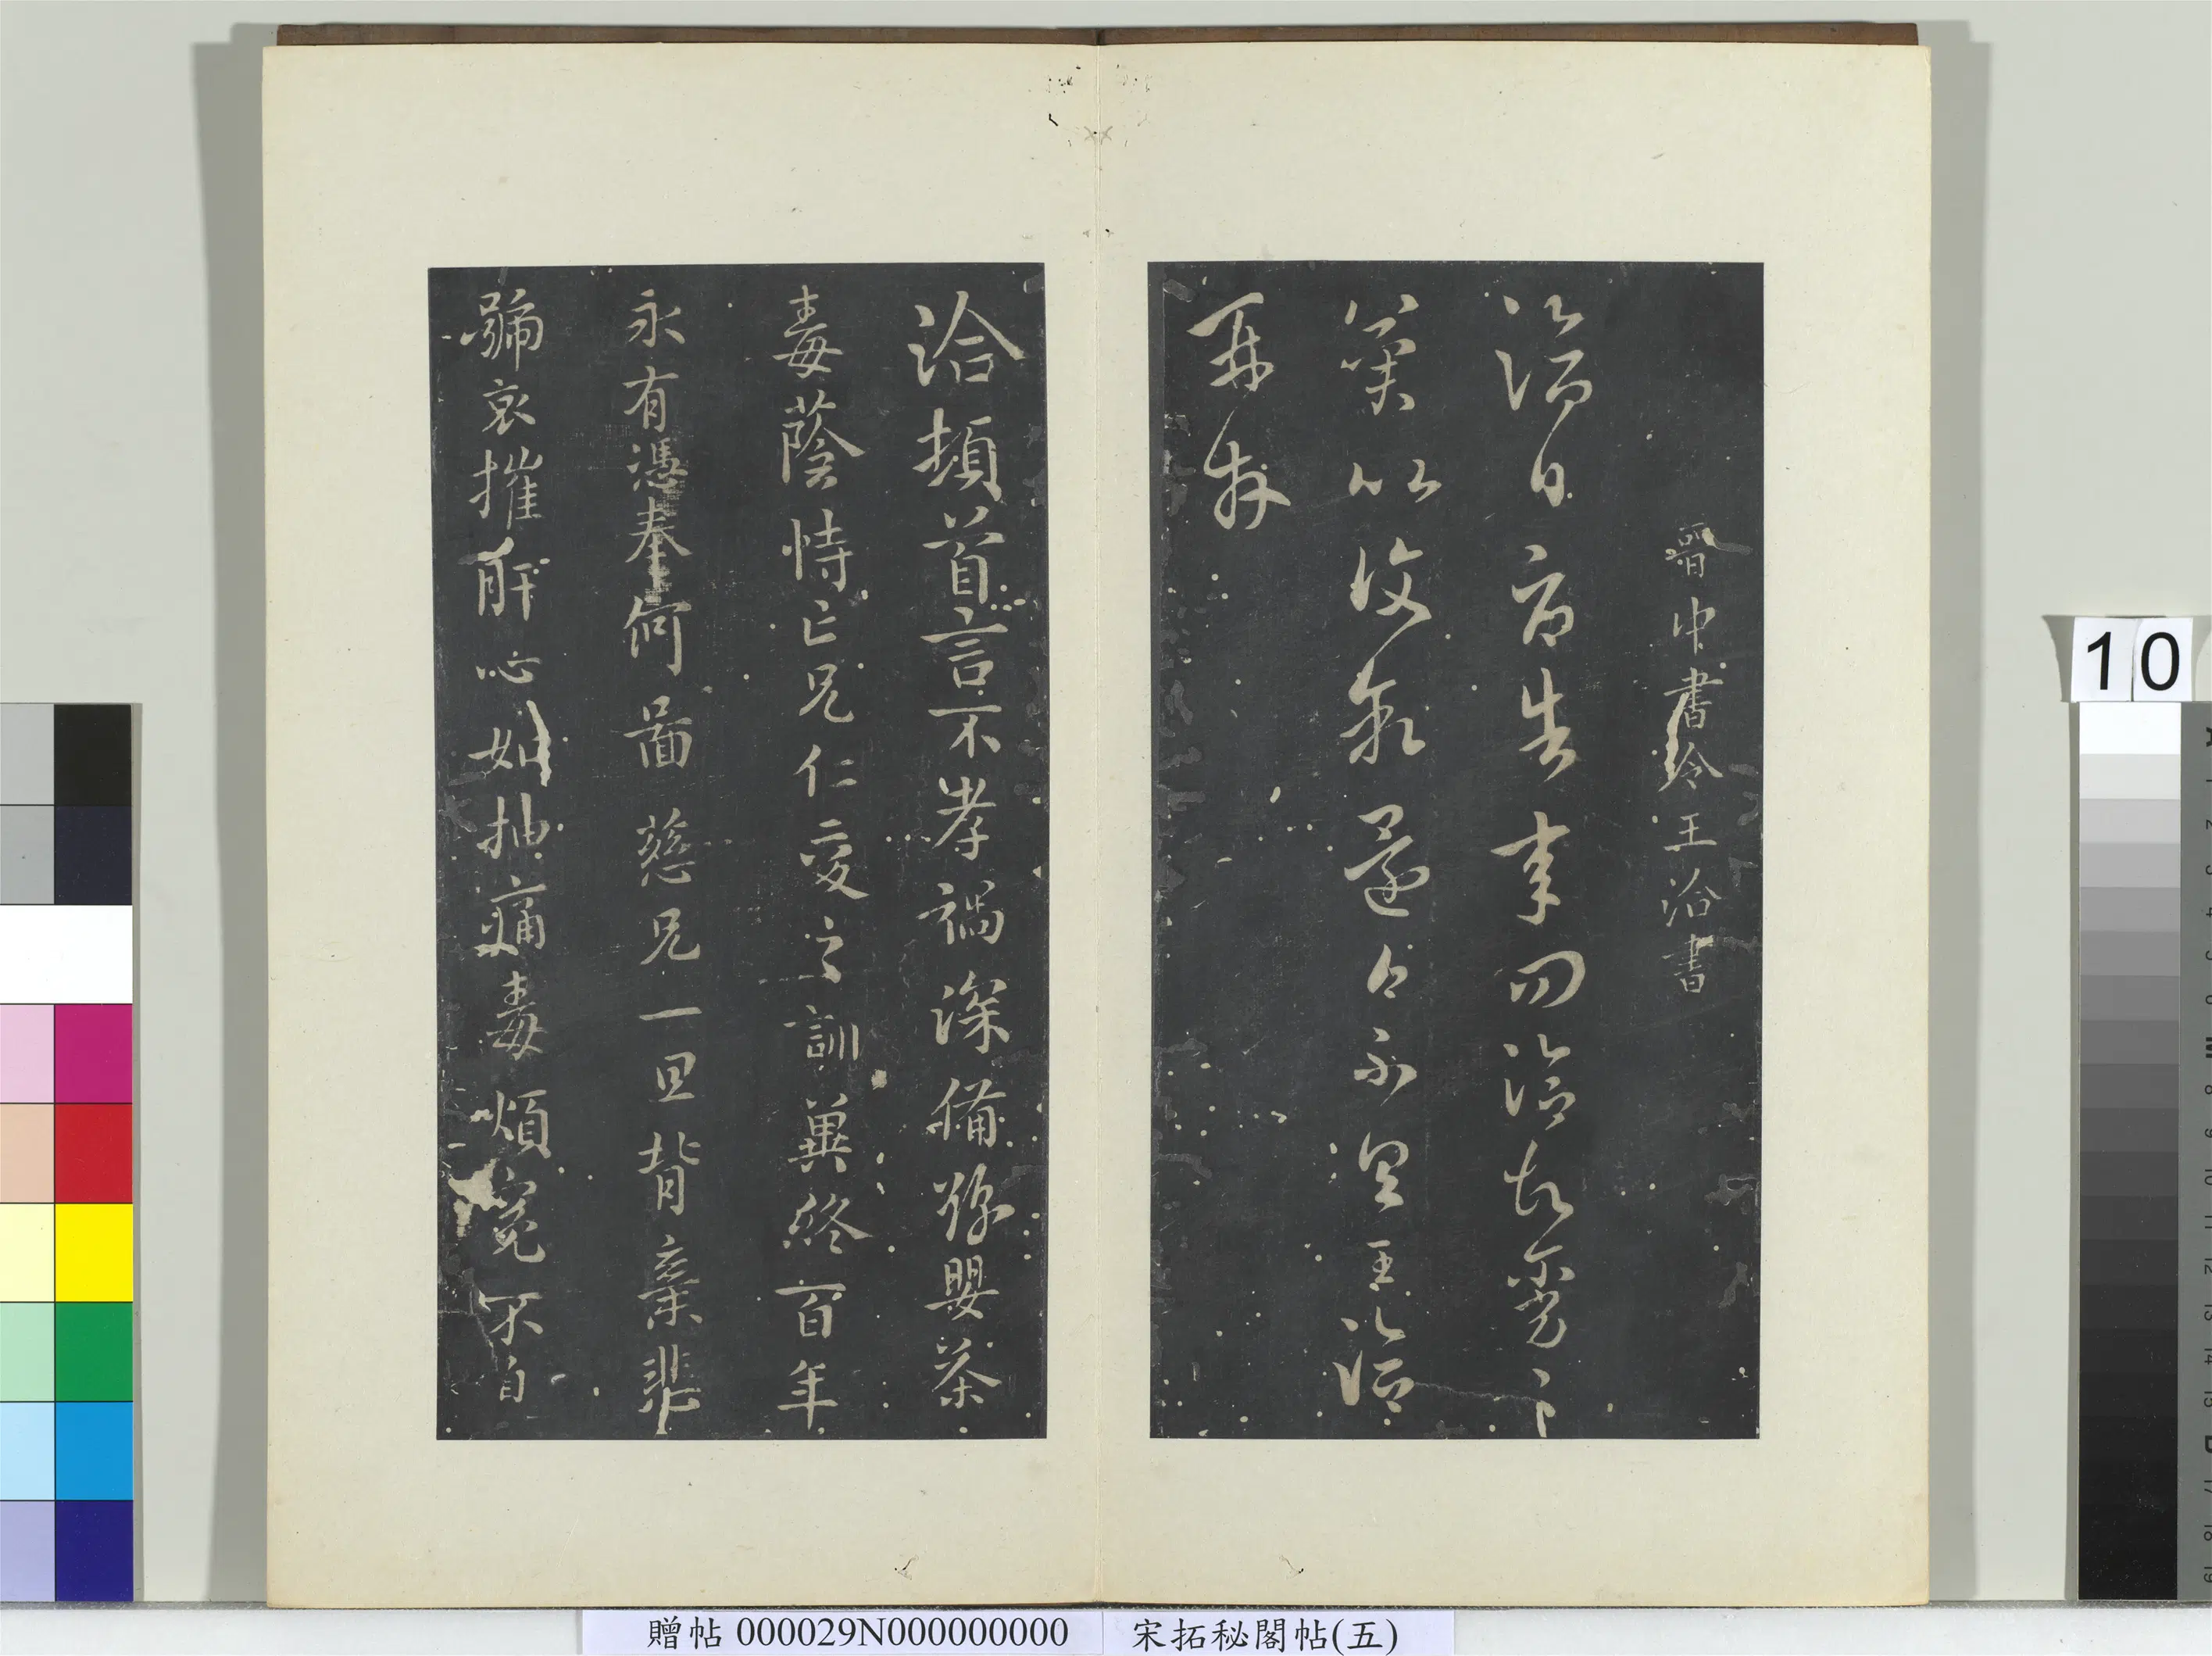 晉中書令王洽書
洽白辱告承問洽故爾劣〻
冀以復敘還白不具王洽
再拜
洽頓首言不孝禍深備豫嬰荼
毒蔭恃亡兄仁愛之訓冀終百年
永有憑奉何圖慈兄一旦背棄悲
號哀摧肝心如抽痛毒煩冤不自
10
贈帖 000029N000000000 宋拓秘閣帖(五)